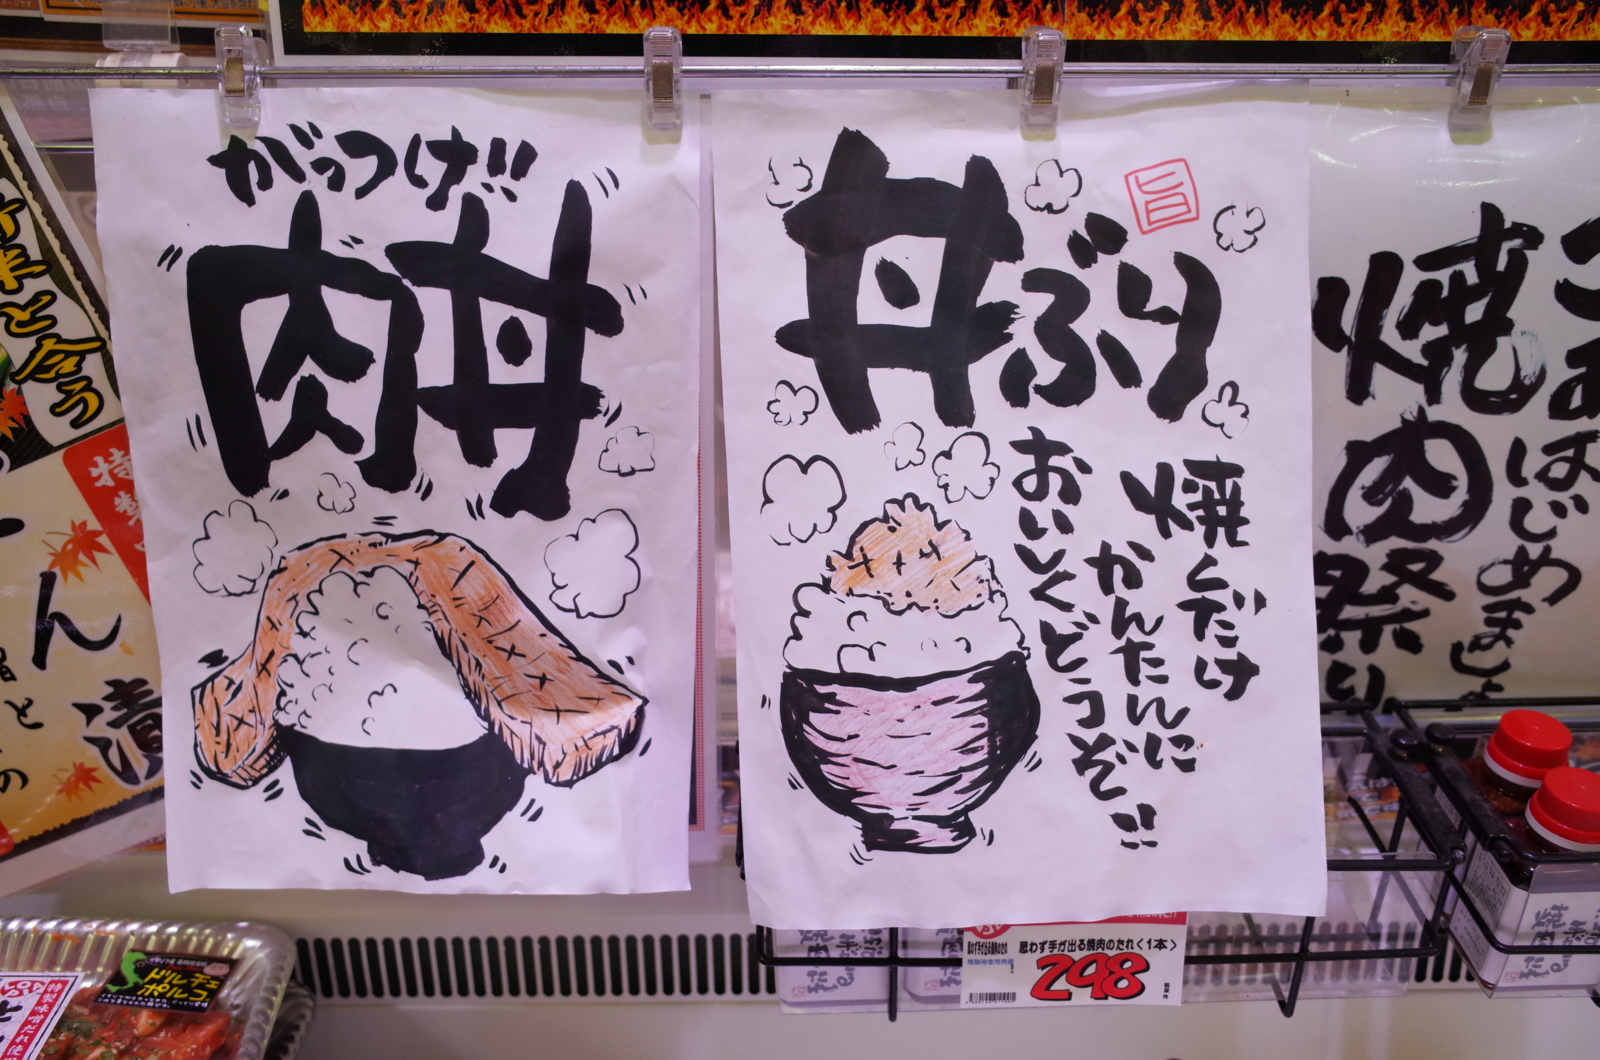 がっつけ!!
肉丼
丼ぶり
旨
焼くだけ
かんたんに
おいしくどうぞ!!
はじめましょ
焼肉祭り
と合う
特製
ん漬
思わず手が出る焼肉のたれ<1本>
298
ドルチェ
ポルコ
特製味噌だれ使用